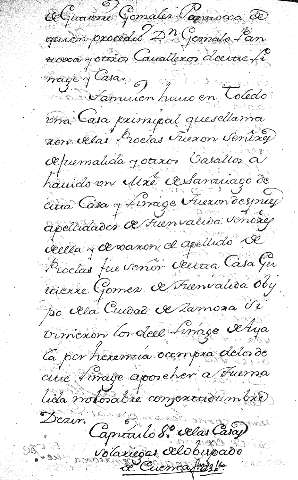 de Gutierre Gonzales Pantoxa de
quien procedio Dn Gonzalo Pan
toxa y otros Cavalleros de este li
nage y Casa.
Tamvien huvo en Toledo
una Casa principal que se llama
ron de las Roelas fueron señores
de fuensalida y otros Vasallos a
havido un Mre de Santiago de
esta Casa y linage fueron despues
apellidados de Fuensalida señores
de ella y dexaron el apellido de
Roelas fue señor de esta Casa Gu
tierre Gomez de Fuensalida obis
po de la Ciudad de Zamora Vi
nieron los del linage de Aya
la por herencia o compra de los de
este linage a poseher a Fuensa
lida no lo sabre con certidumbre
Dezir.
Capitulo de las Casas
solariegas del obispado
de Cuenca